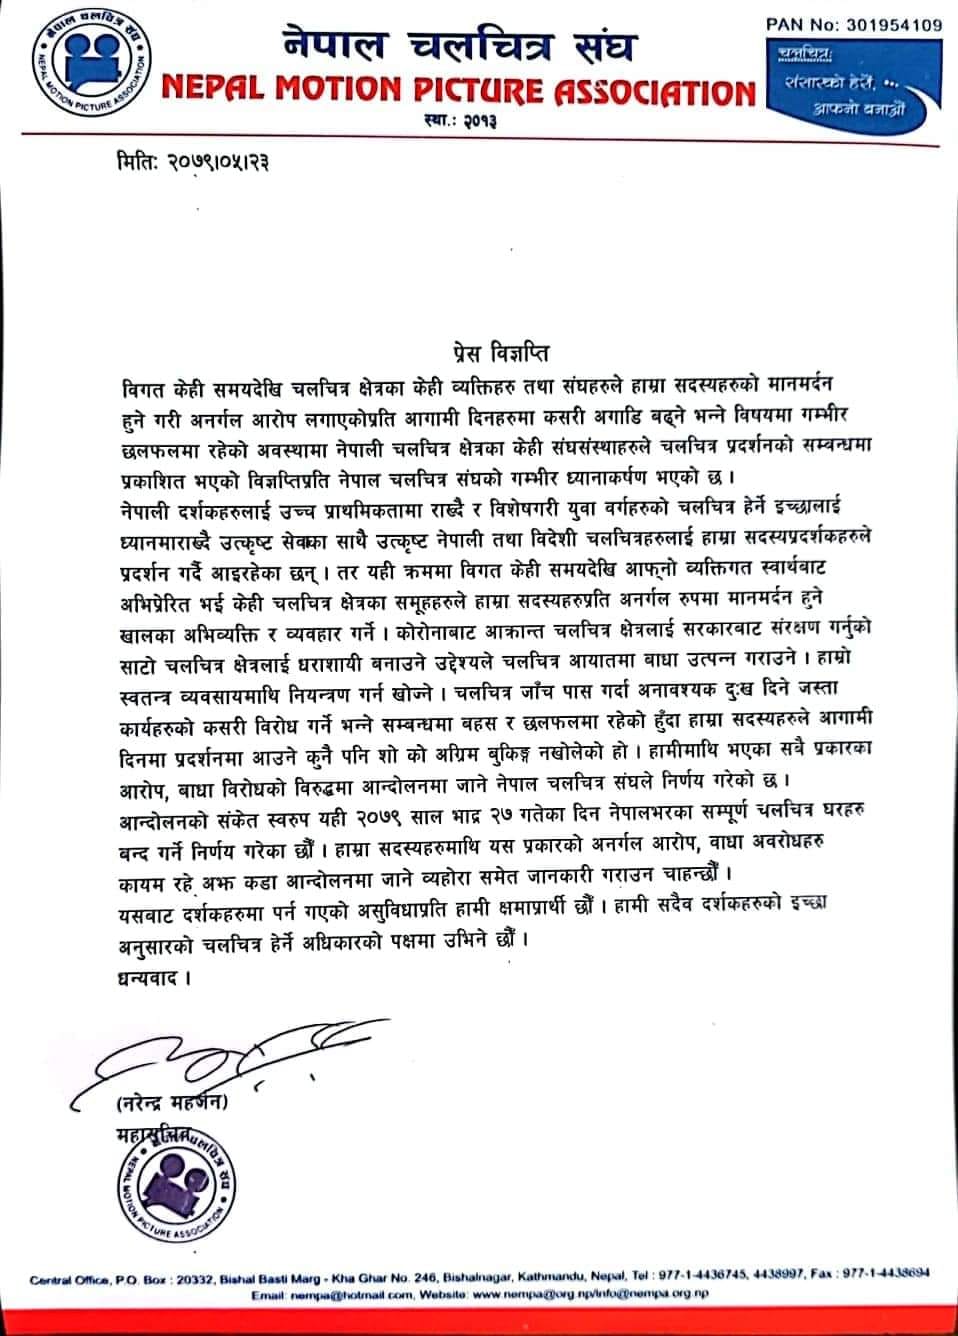 नेपाल चलचित्र संघ
NEPAL MOTION PICTURE ASSOCIATION
नेपाल चलचित्र संघ
NEPAL MOTION PICTURE ASSOCIATION
स्था.: २०१३
PAN No: 301954109
चलचित्रः
संसारको हेरौं, ...
आफ्नो बनाऔं
मिति: २०७९।०५।२३
प्रेस विज्ञप्ति
विगत केही समयदेखि चलचित्र क्षेत्रका केही व्यक्तिहरु तथा संघहरुले हाम्रा सदस्यहरुको मानमर्दन
हुने गरी अनर्गल आरोप लगाएकोप्रति आगामी दिनहरुमा कसरी अगाडि बढ्ने भन्ने विषयमा गम्भीर
छलफलमा रहेको अवस्थामा नेपाली चलचित्र क्षेत्रका केही संघसंस्थाहरुले चलचित्र प्रदर्शनको सम्बन्धमा
प्रकाशित भएको विज्ञप्तिप्रति नेपाल चलचित्र संघको गम्भीर ध्यानाकर्षण भएको छ ।
नेपाली दर्शकहरुलाई उच्च प्राथमिकतामा राख्दै र विशेषगरी युवा वर्गहरुको चलचित्र हेर्ने इच्छालाई
ध्यानमाराख्दै उत्कृष्ट सेवाका साथै उत्कृष्ट नेपाली तथा विदेशी चलचित्रहरुलाई हाम्रा सदस्यप्रदर्शकहरुले
प्रदर्शन गर्दै आइरहेका छन् । तर यही क्रममा विगत केही समयदेखि आफ्नो व्यक्तिगत स्वार्थबाट
अभिप्रेरित भई केही चलचित्र क्षेत्रका समूहहरुले हाम्रा सदस्यहरुप्रति अनर्गल रुपमा मानमर्दन हुने
खालका अभिव्यक्ति र व्यवहार गर्ने । कोरोनाबाट आक्रान्त चलचित्र क्षेत्रलाई सरकारबाट संरक्षण गर्नुको
साटो चलचित्र क्षेत्रलाई धराशायी बनाउने उद्देश्यले चलचित्र आयातमा बाधा उत्पन्न गराउने । हाम्रो
स्वतन्त्र व्यवसायमाथि नियन्त्रण गर्न खोज्ने । चलचित्र जाँच पास गर्दा अनावश्यक दुःख दिने जस्ता
कार्यहरुको कसरी विरोध गर्ने भन्ने सम्बन्धमा बहस र छलफलमा रहेको हुँदा हाम्रा सदस्यहरुले आगामी
दिनमा प्रदर्शनमा आउने कुनै पनि शो को अग्रिम बुकिङ्ग नखोलेको हो । हामीमाथि भएका सबै प्रकारका
आरोप, बाधा विरोधको विरुद्धमा आन्दोलनमा जाने नेपाल चलचित्र संघले निर्णय गरेको छ ।
आन्दोलनको संकेत स्वरुप यही २०७९ साल भाद्र २७ गतेका दिन नेपालभरका सम्पूर्ण चलचित्र घरहरु
बन्द गर्ने निर्णय गरेका छौँ । हाम्रा सदस्यहरुमाथि यस प्रकारको अनर्गल आरोप, वाधा अवरोधहरु
कायम रहे अझ कडा आन्दोलनमा जाने व्यहोरा समेत जानकारी गराउन चाहन्छौँ ।
यसबाट दर्शकहरुमा पर्न गएको असुविधाप्रति हामी क्षमाप्रार्थी छौँ । हामी सदैव दर्शकहरुको इच्छा
अनुसारको चलचित्र हेर्ने अधिकारको पक्षमा उभिने छौँ ।
धन्यवाद ।
(नरेन्द्र महर्जन)
महासचिव
नेपाल चलचित्र संघ
NEPAL MOTION PICTURE ASSOCIATION
Central Office, P.O. Box : 20332, Bishal Basti Marg - Kha Ghar No. 246, Bishalnagar, Kathmandu, Nepal, Tel : 977-1-4436745, 4438997, Fax : 977-1-4438694
Email: nempa@hotmail.com, Website: www.nempa@org.np/info@nempa.org.np